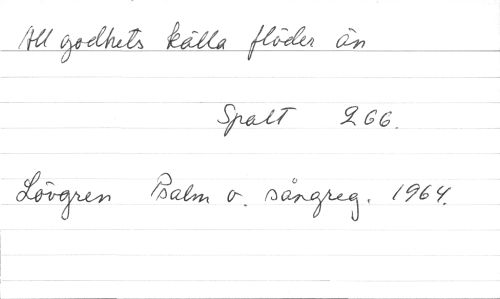 All godhets källa flöder än
Spalt 266.
Lövgren Psalm o. sångreg. 1964.